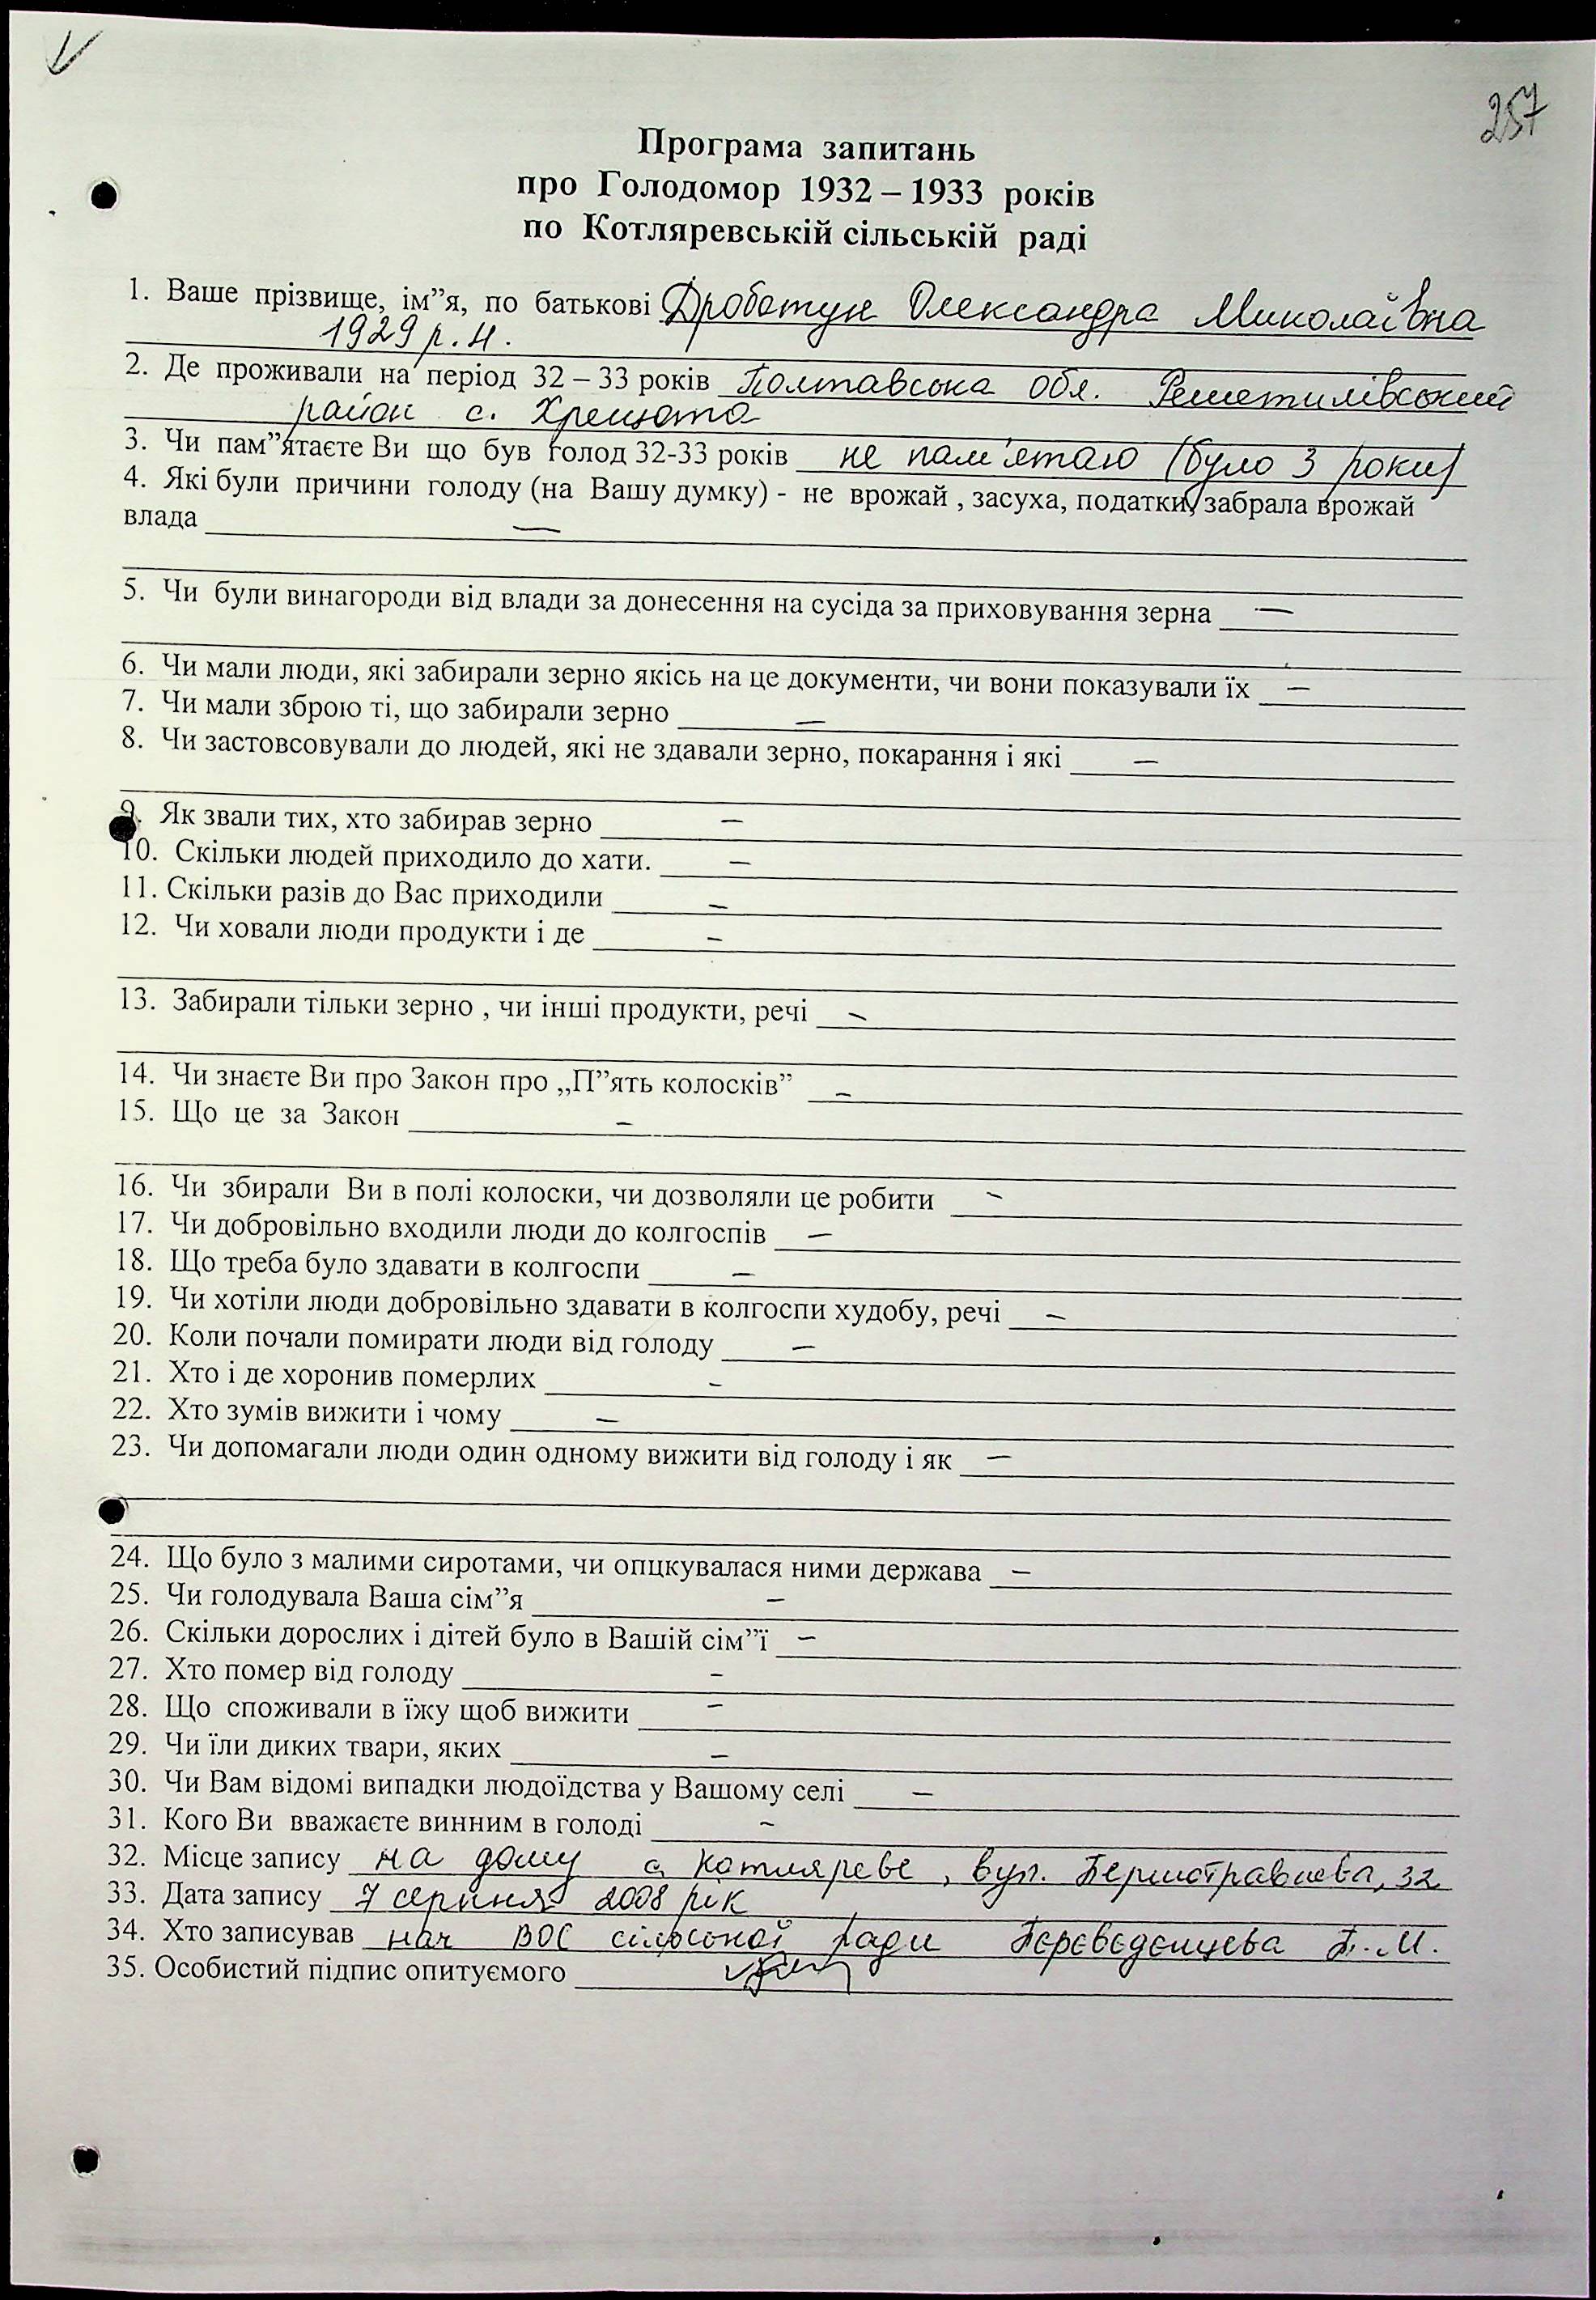 257
Програма запитань
про Голодомор 1932 – 1933 років
по Котляревській сільській раді
1. Ваше прізвище, ім”я, по батькові Дробатун Олександра Миколаївна
1929 р.н.
2. Де проживали на період 32 – 33 років Полтавська обл. Решетилівський
район с. Хрещата
3. Чи пам”ятаєте Ви що був голод 32-33 років не пам'ятаю (було 3 роки)
4. Які були причини голоду (на Вашу думку) - не врожай , засуха, податки, забрала врожай
влада —
5. Чи були винагороди від влади за донесення на сусіда за приховування зерна —
6. Чи мали люди, які забирали зерно якісь на це документи, чи вони показували їх —
7. Чи мали зброю ті, що забирали зерно —
8. Чи застовсовували до людей, які не здавали зерно, покарання і які —
9. Як звали тих, хто забирав зерно —
10. Скільки людей приходило до хати. —
11. Скільки разів до Вас приходили —
12. Чи ховали люди продукти і де —
13. Забирали тільки зерно , чи інші продукти, речі —
14. Чи знаєте Ви про Закон про „П”ять колосків” —
15. Що це за Закон —
16. Чи збирали Ви в полі колоски, чи дозволяли це робити —
17. Чи добровільно входили люди до колгоспів —
18. Що треба було здавати в колгоспи —
19. Чи хотіли люди добровільно здавати в колгоспи худобу, речі —
20. Коли почали помирати люди від голоду —
21. Хто і де хоронив померлих —
22. Хто зумів вижити і чому —
23. Чи допомагали люди один одному вижити від голоду і як —
24. Що було з малими сиротами, чи опцкувалася ними держава —
25. Чи голодувала Ваша сім”я —
26. Скільки дорослих і дітей було в Вашій сім”ї —
27. Хто помер від голоду —
28. Що споживали в їжу щоб вижити —
29. Чи їли диких твари, яких —
30. Чи Вам відомі випадки людоїдства у Вашому селі —
31. Кого Ви вважаєте винним в голоді —
32. Місце запису на дому с. Котляреве, вул. Першотравнева, 32
33. Дата запису 7 серпня 2008 рік
34. Хто записував нач ВОС сільської ради Переведенцева Т.М.
35. Особистий підпис опитуємого